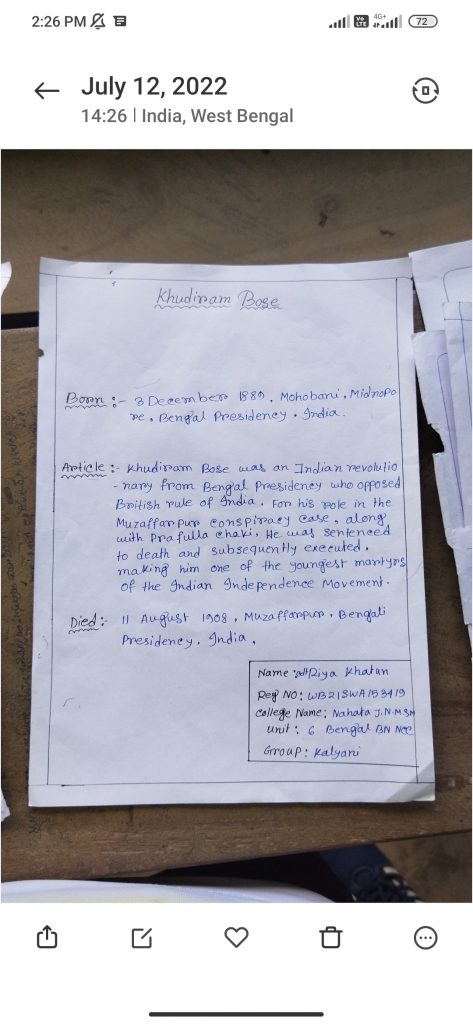 2:26 PM
Vo LTE
4G+
72
July 12, 2022
14:26 | India, West Bengal
Khudiram Bose
Born :- 3 December 1889, Mohobani, Midnapo
re, Bengal Presidency, India.
Article :- Khudiram Bose was an Indian revolutio
-nary from Bengal Presidency who opposed
British rule of India. For his role in the
Muzaffarpur conspiracy case, along
with Prafulla chaki, He was sentenced
to death and subsequently executed,
making him one of the youngest martyrs
of the Indian Independence Movement.
Died :- 11 August 1908, Muzaffarpur, Bengali
Presidency, India.
Name : Riya Khatun
Reg NO: WB21SWA153419
College Name: Nahata J.N.M.S.M
unit : 6 Bengal BN NCC
Group: Kalyani